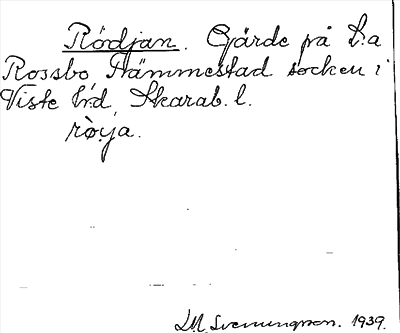 Rödjan. Gärde på L:a
Rossbo, Främmestad socken i
Viste hrd, Skarab. l.
rö̀ja.
LM Svenungsson. 1939.